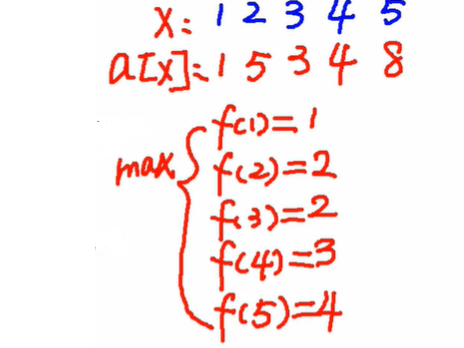 x: 1 2 3 4 5
a[x]: 1 5 3 4 8
f(1)=1
max f(2)=2
f(3)=2
f(4)=3
f(5)=4